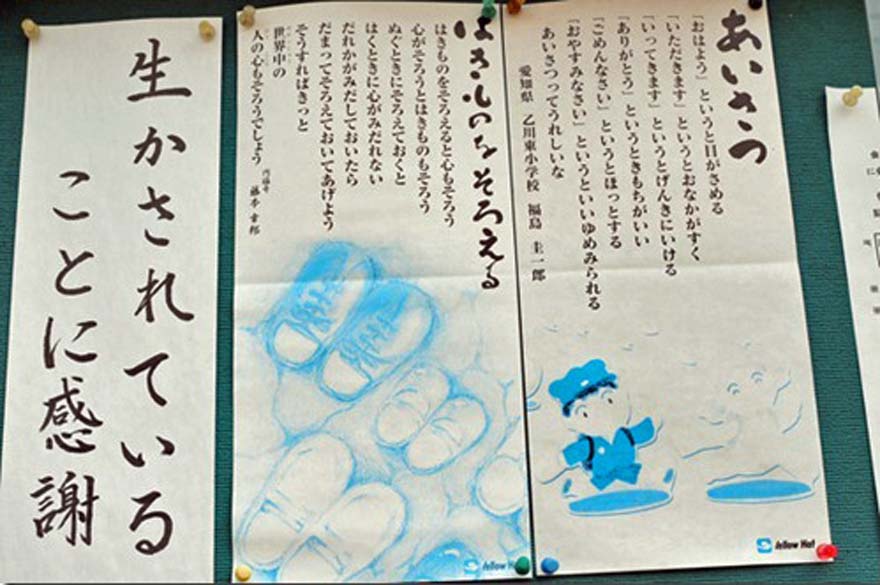 あいさつ
「おはよう」というと目がさめる
「いただきます」というとおなかがすく
「いってきます」というとげんきにいける
「ありがとう」というときもちがいい
「ごめんなさい」というとほっとする
「おやすみなさい」というといいゆめみられる
あいさつってうれしいな
愛知県 乙川東小学校 福島 圭一郎
Yellow Hat
はきものをそろえる
はきものをそろえると心もそろう
心がそろうとはきものもそろう
ぬぐときにそろえておくと
はくときに心がみだれない
だれかがみだしておいたら
だまってそろえておいてあげよう
そうすればきっと
世界中の
人の心もそろうでしょう
円福寺 藤本幸邦
Yellow Hat
生かされている
ことに感謝